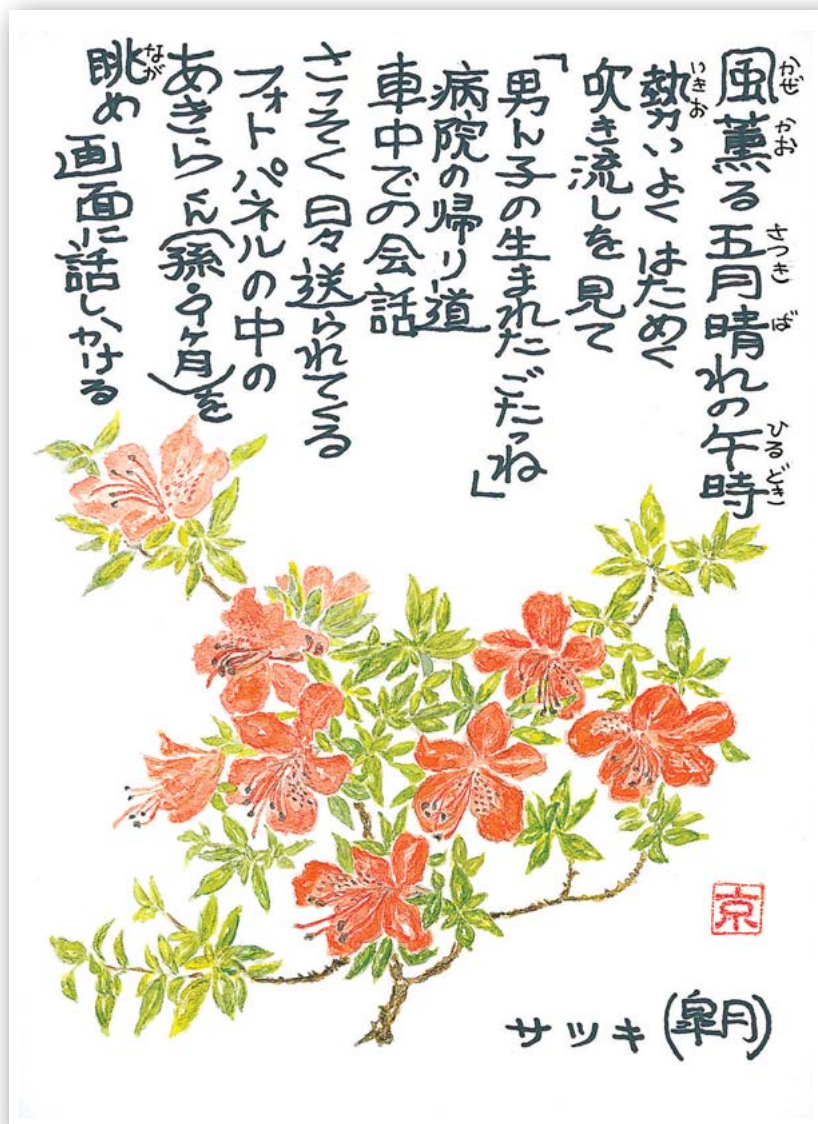 風薫る五月晴れの午時
かぜ かお さつき ば ひる どき
勢いよく はためく
いきお
吹き流しを 見て
「男ん子の生まれたごたっね」
病院の帰り道
車中での会話
さっそく 日々送られてくる
フォトパネルの中の
あきらくん(孫・9ヶ月)を
眺め 画面に話しかける
なが
京
サツキ(皐月)